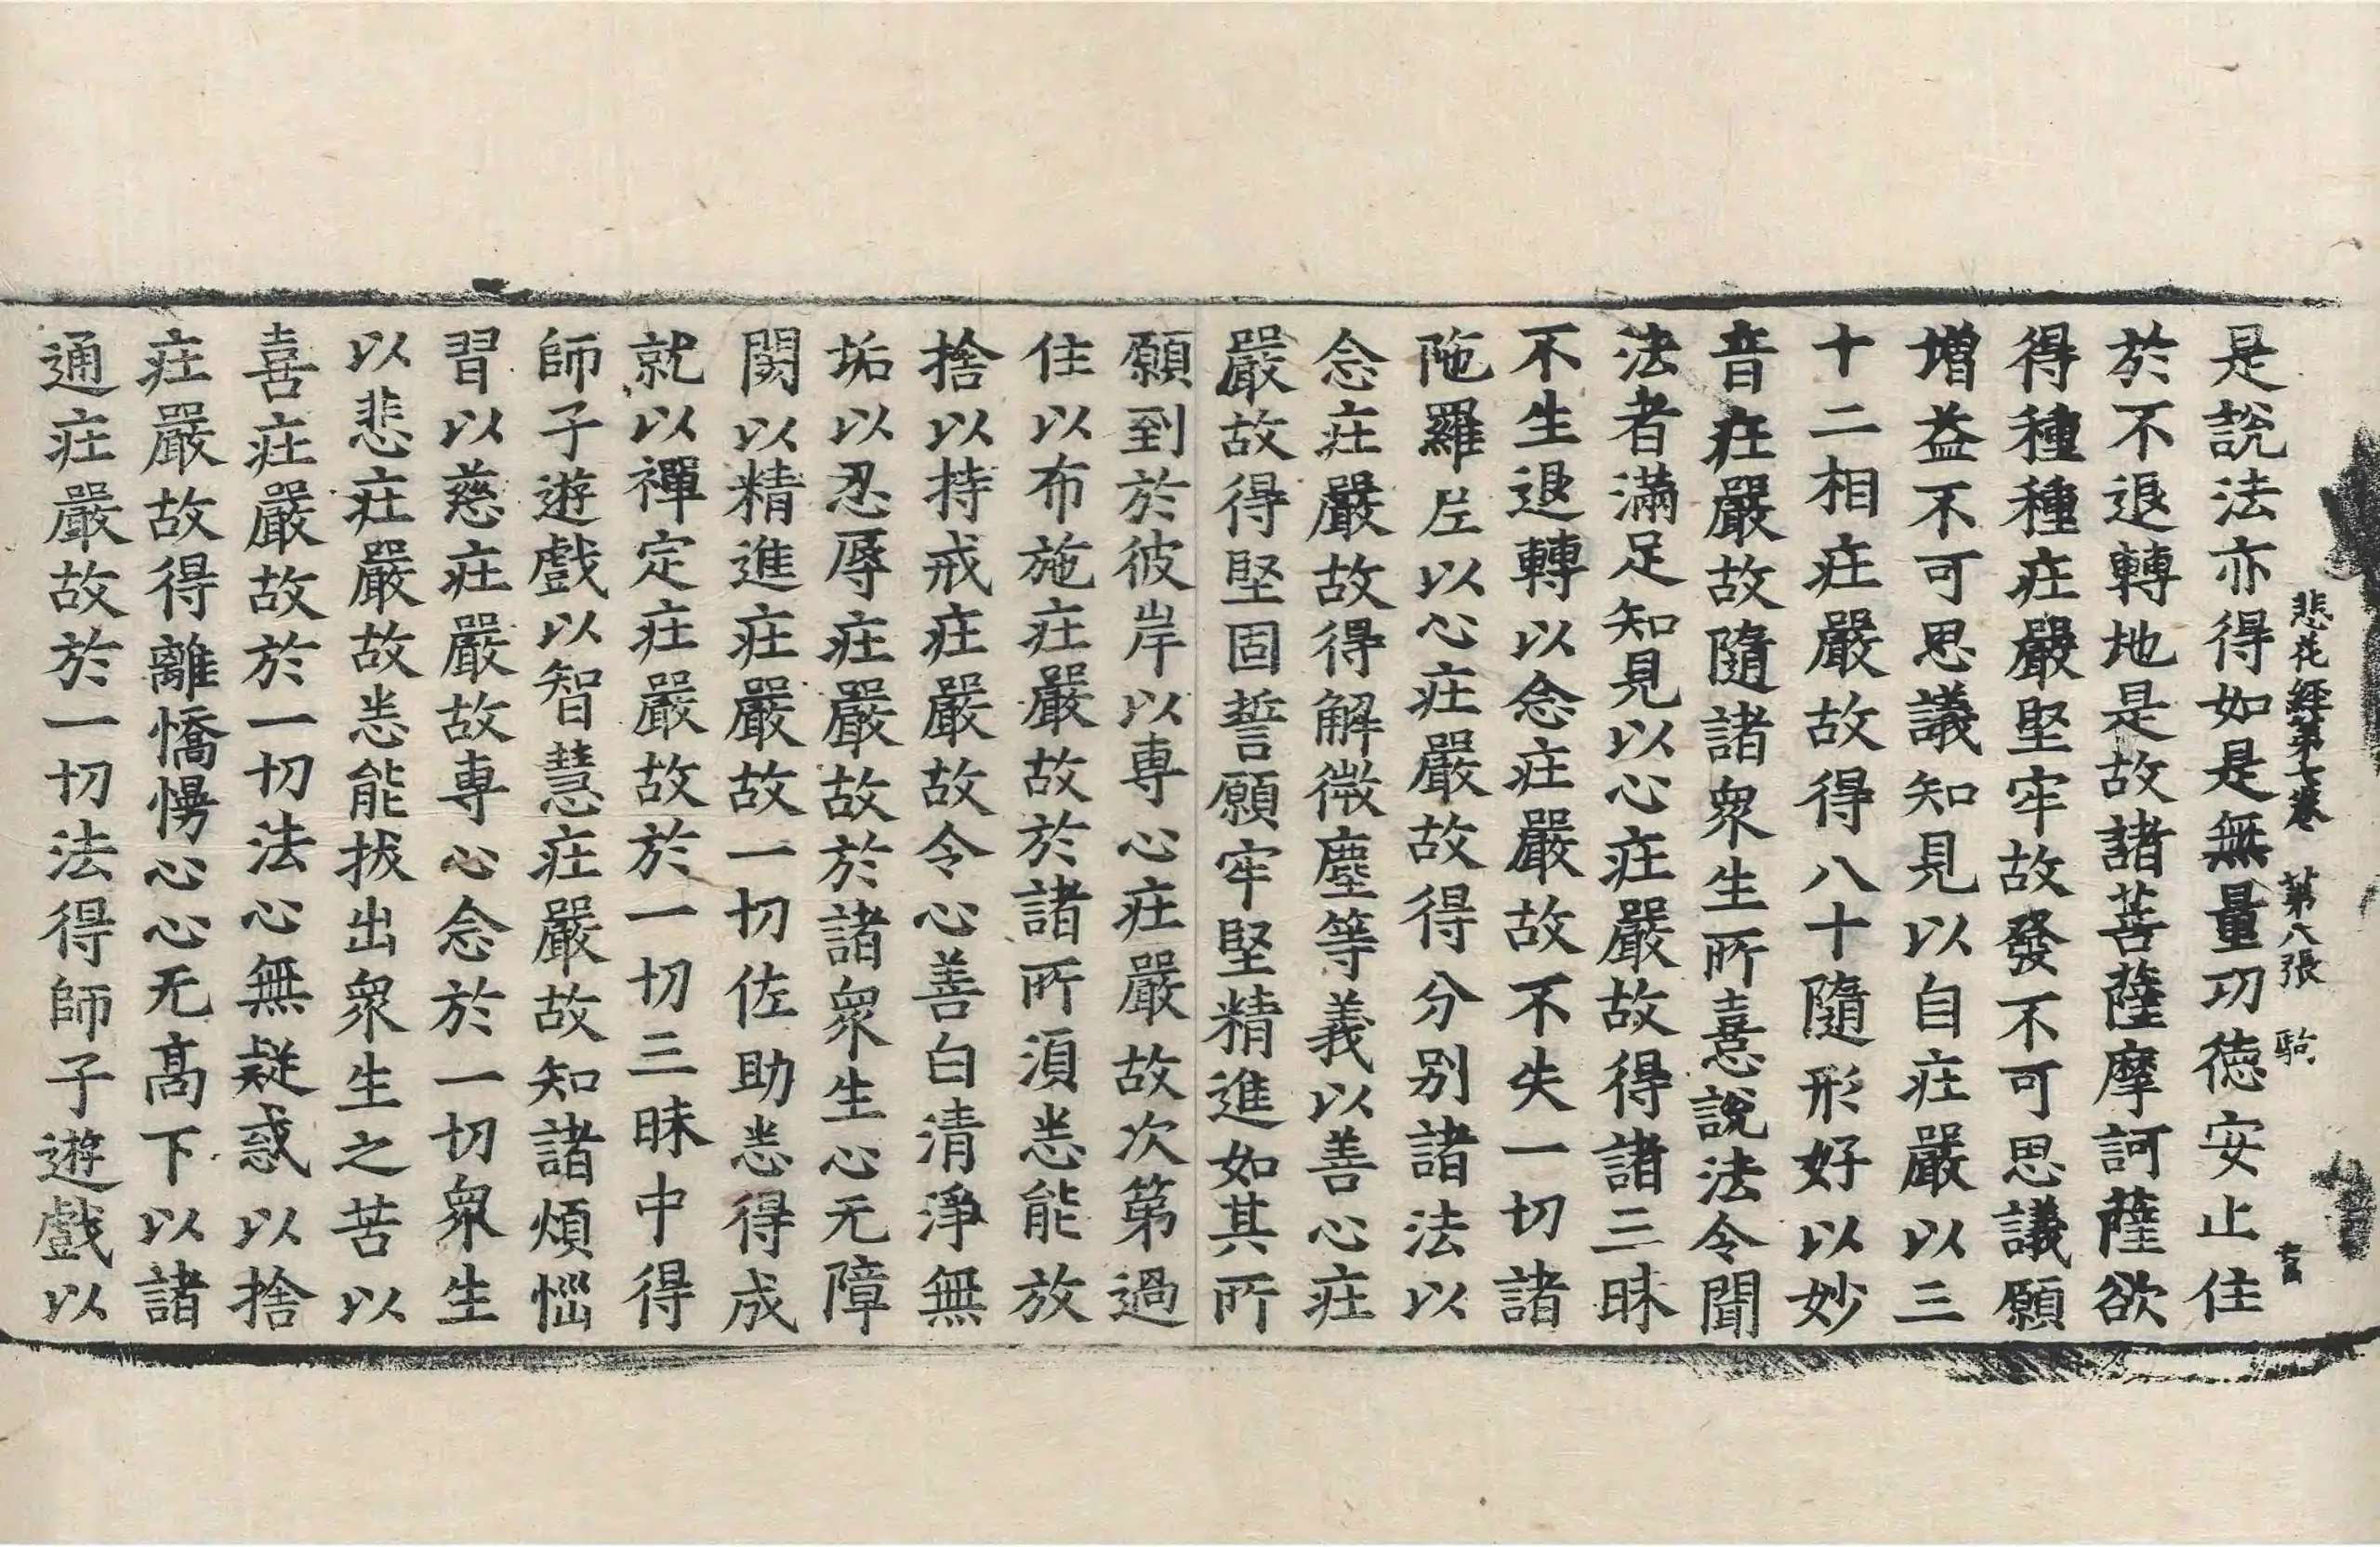 悲花經第七卷　第八張　駒
是說法亦得如是無量功徳安止住
於不退轉地是故諸菩薩摩訶薩欲
得種種疰嚴堅牢故發不可思議願
增益不可思議知見以自疰嚴以三
十二相疰嚴故得八十隨形好以妙
音疰嚴故隨諸衆生所憙說法令聞
法者滿足知見以心疰嚴故得諸三昧
不生退轉以念疰嚴故不失一切諸
陁羅𠯋以心疰嚴故得分別諸法以
念疰嚴故得解微塵等義以善心疰
嚴故得堅固誓願牢堅精進如其所
願到於彼岸以専心疰嚴故次第過
住以布施疰嚴故於諸所湏悉能放
捨以持戒疰嚴故令心善白清淨無
垢以忍辱疰嚴故於諸衆生心无障
閡以精進疰嚴故一切佐助悉得成
就以禪定疰嚴故於一切三昧中得
師子遊戲以智慧疰嚴故知諸煩惱
習以慈疰嚴故専心念於一切衆生
以悲疰嚴故悉能拔出衆生之苦以
喜疰嚴故於一切法心無疑惑以捨
疰嚴故得離憍慢心心无髙下以諸
通疰嚴故於一切法得師子遊戲以